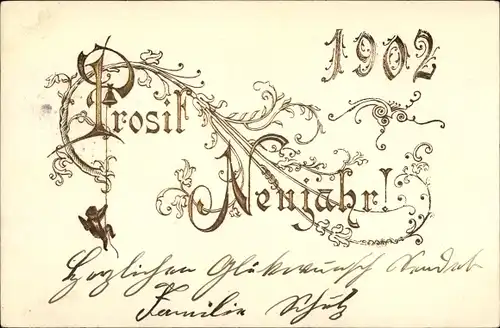 1902
Prosit
Neujahr!
Herzlichen Glükwunsch sendet
Familie Schulz